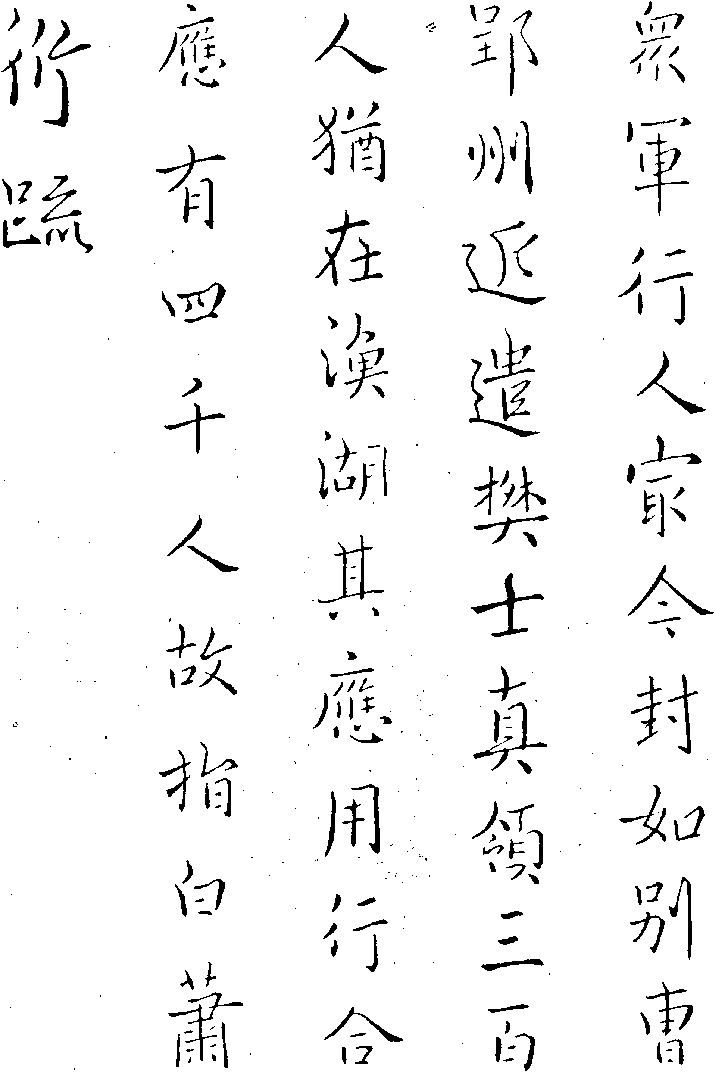 衆軍行人家今封如别曺
郢州近遣樊士真領三百
人猶在漁湖其應用行合
應有四千人故指白蕭
衍疏